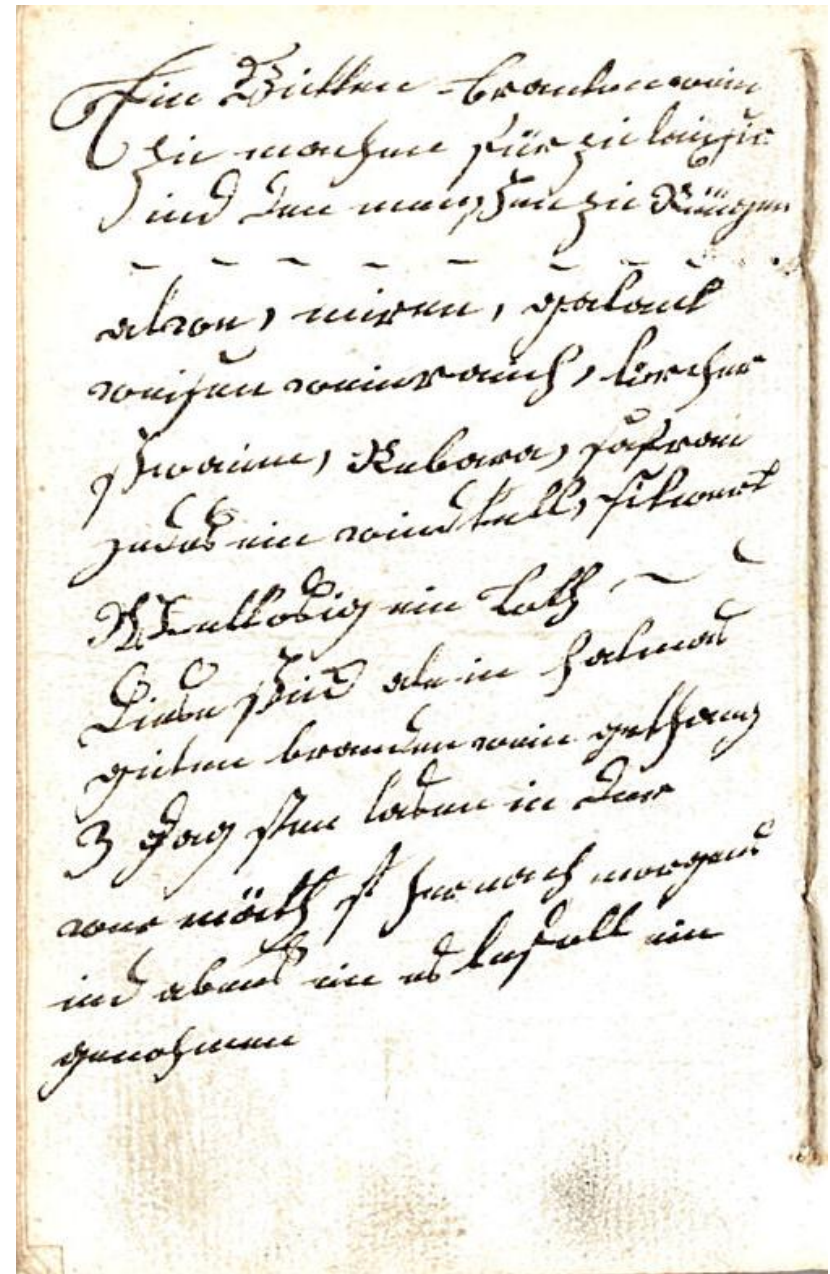 Ein Bitteren brandenwein
zu machen für zu laxiren
und den magen zu Reinigen
aloe, miren, galant
weisen weinrauch, lercher
schwaim, Rebara, safran
jedes ein quindtell, sitwert
ein loth
Diese stuck ale in halmas
guten branden wein gethan
3 Tag sten lasen in der
wermth hernach morgens
und abens ein es lefell ein
genohmen